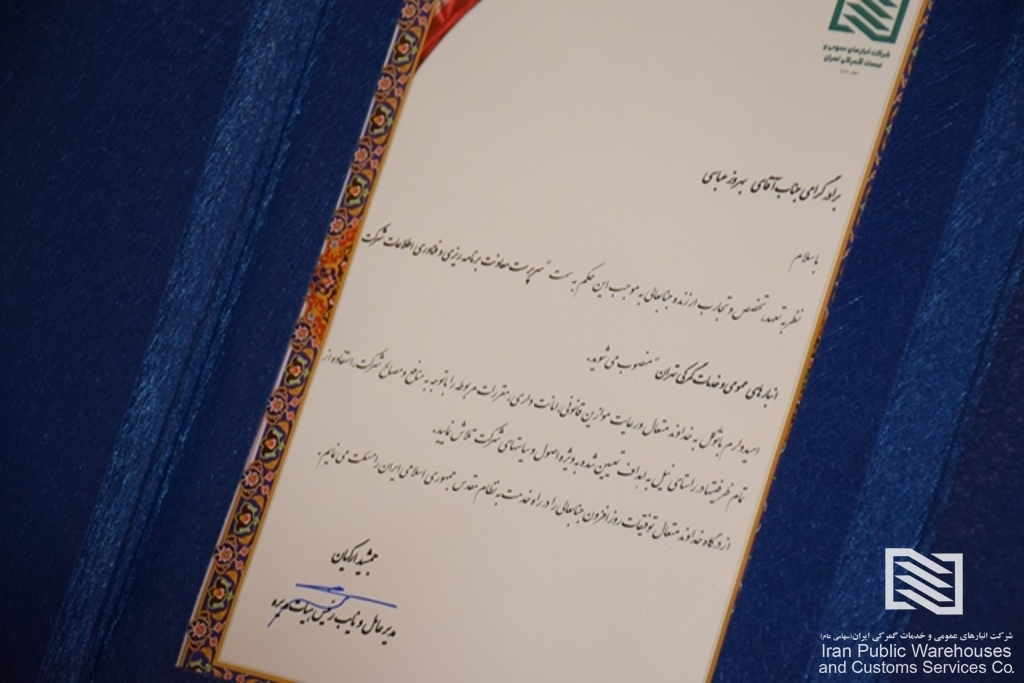 شرکت انبارهای عمومی و
خدمات گمرکی تهران
برادر گرامی جناب آقای بهروز عباسی
با سلام
نظر به تعهد، تخصص و تجارب ارزنده جنابعالی به موجب این حکم به سمت "سرپرست معاونت برنامه ریزی و فناوری اطلاعات شرکت
انبارهای عمومی و خدمات گمرکی تهران" منصوب می شوید.
امیدوارم با توکل به خداوند متعال و رعایت موازین قانونی، امانت داری، مقررات مربوطه را با توجه به منافع و مصالح شرکت، استفاده از
تمام ظرفیتها در راستای نیل به اهداف تعیین شده به ویژه اصول و سیاستهای شرکت تلاش نمایید.
از درگاه خداوند متعال توفیقات روز افزون جنابعالی را در راه خدمت به نظام مقدس جمهوری اسلامی ایران را مسئلت می نمایم.
جمشید ارکیان
مدیر عامل و نایب رئیس هیات مدیره
شرکت انبارهای عمومی و خدمات گمرکی ایران (سهامی عام)
Iran Public Warehouses
and Customs Services Co.